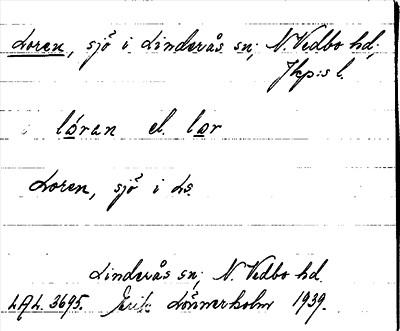 Loren, sjö i Linderås sn; N. Vedbo hd;
Jkp:s l.
lóran el. lor
Loren, sjö i Ls.
Linderås sn; N. Vedbo hd.
LAL. 3695. Erik Lönnerholm 1939.